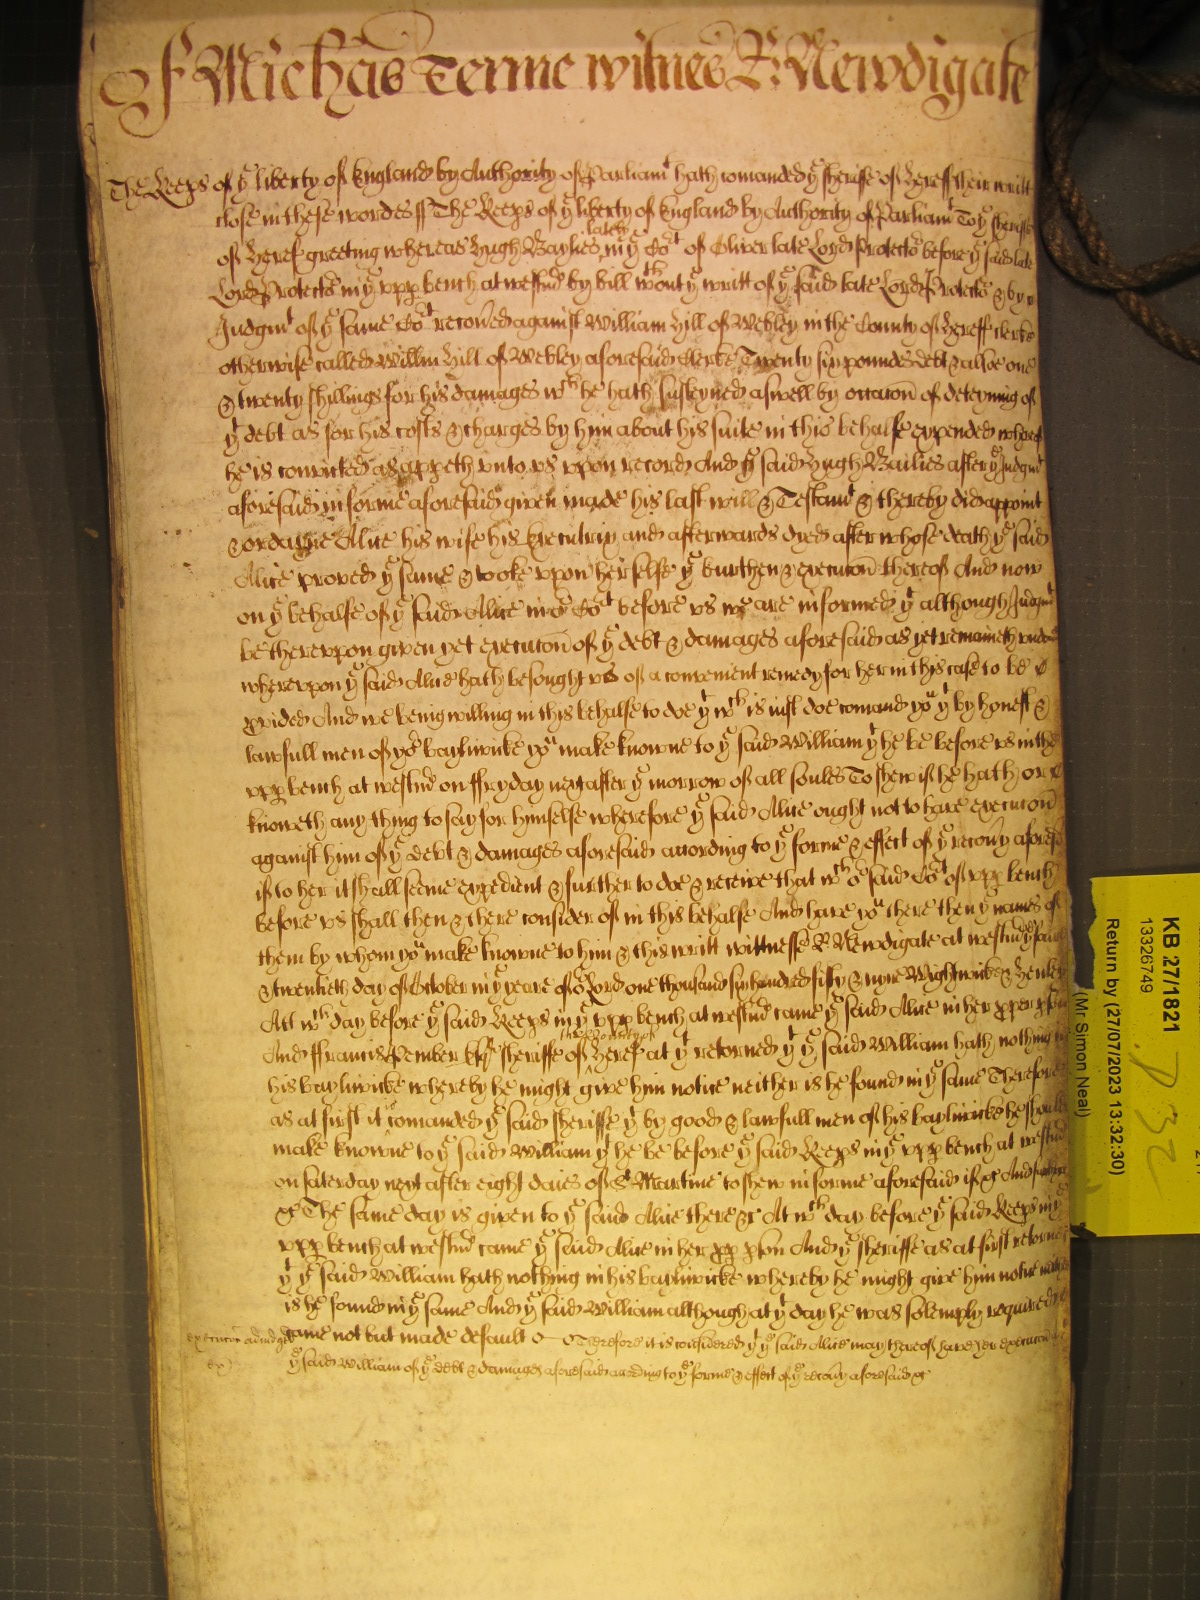 Of Michas Terme witnes R: Newdigate
The Keeps of ye liberty of England by Authority of Parliamt hath comanded ye sheriffe of Hereff their writt
close in these wordes ss The Keeps of ye liberty of England by Authority of Parliamt To ye sheriffe
of Heref greeting whereas Hugh Baylies lately in ye Cort of Oliver late Lord Protector before ye said late
Lord Protector in ye vpp bench at westmr by bill wthout ye writt of ye said late Lord Protector & by
Judgmt of ye same Cort recoued against William Hill of Webley in the County of Hereff clerke
otherwise called Willm Hill of Webley aforesaid Clerke Twenty six poundes debt & alsoe one
& twenty shillings for his damages wch he hath susteyned aswell by occacon of deteyning of
ye debt as for his costs & charges by him about his suite in this behalfe expended whereof
he is convicted as appeth vnto vs vpon record And ye said Hugh Bailies after ye Judgmt
aforesaid in forme aforesaid given made his last will & Testamt & thereby did appoint
& ordayne Alice his wife his Executrix and afterwards dyed after whose death ye said
Alice proved ye same & tooke vpon her selfe ye burthen & execucon thereof And now
on ye behalfe of ye said Alice in or Cort before vs we are informed yt although Judgmt
be therevpon given yet execucon of ye debt & damages aforesaid as yet remaineth vndon
wherevpon ye said Alice hath besought vs of a convenient remedy for her in this case to be
pvided And we being willing in this behalfe to doe yt wch is iust doe comand you yt by honest &
lawfull men of yor bayliwicke you make knowne to ye said William yt he be before vs in the
vpp bench at westmr on ffryday next after ye morrow of all soules To shew if he hath or
knoweth any thing to say for himselfe wherefore ye said Alice ought not to have execucon
against him of ye debt & damages aforesaid according to ye forme & effect of ye recouy aforesd
if to her it shall seeme expedient & further to doe & receive that wch or said Cort of vpp bench
before vs shall then & there consider of in this behalfe And have you there then ye names of
them by whom you make knowne to him & this writt wittnesse R: Newdigate at westmr ye
& twentieth day of October in ye yeare of or Lord one thousand six hundred fifty & nyne Wightwicke & Henley
Att wch day before ye said Keeps in ye vpp bench at westmr came ye said Alice in her pper pson
And ffrancis Pember Esqr sheriffe of the County of Heref at yt retorned yt ye said William hath nothing in
his bayliwicke whereby he might give him notice neither is he found in ye same Therefore
as at first it is comanded ye said sheriffe yt by good & lawfull men of his bayliwicke he should
make knowne to ye said William yt he be before ye said Keeps in ye vpp bench at westmr
on saterday next after eight daies of St Martine to shew in forme aforesaid if &c And further
&c The same day is given to ye said Alice there &c At wch day before ye said Keeps in ye
vpp bench at westmr came ye said Alice in her pp pson And ye sheriffe as at first retorned
yt ye said William hath nothing in his bayliwicke whereby he might give him notice neither
is he found in ye same And ye said William although at yt day he was solemply required
came not but made default Therefore it is considered yt ye said Alice may thereof have her execucon
execucon adiudged
ye said William of ye debt & damages aforesaid according to ye forme & effect of ye recouy aforesaid &c
KB 27/1821
13326749
Return by (27/07/2023 13:32:30)
(Mr Simon Neal)